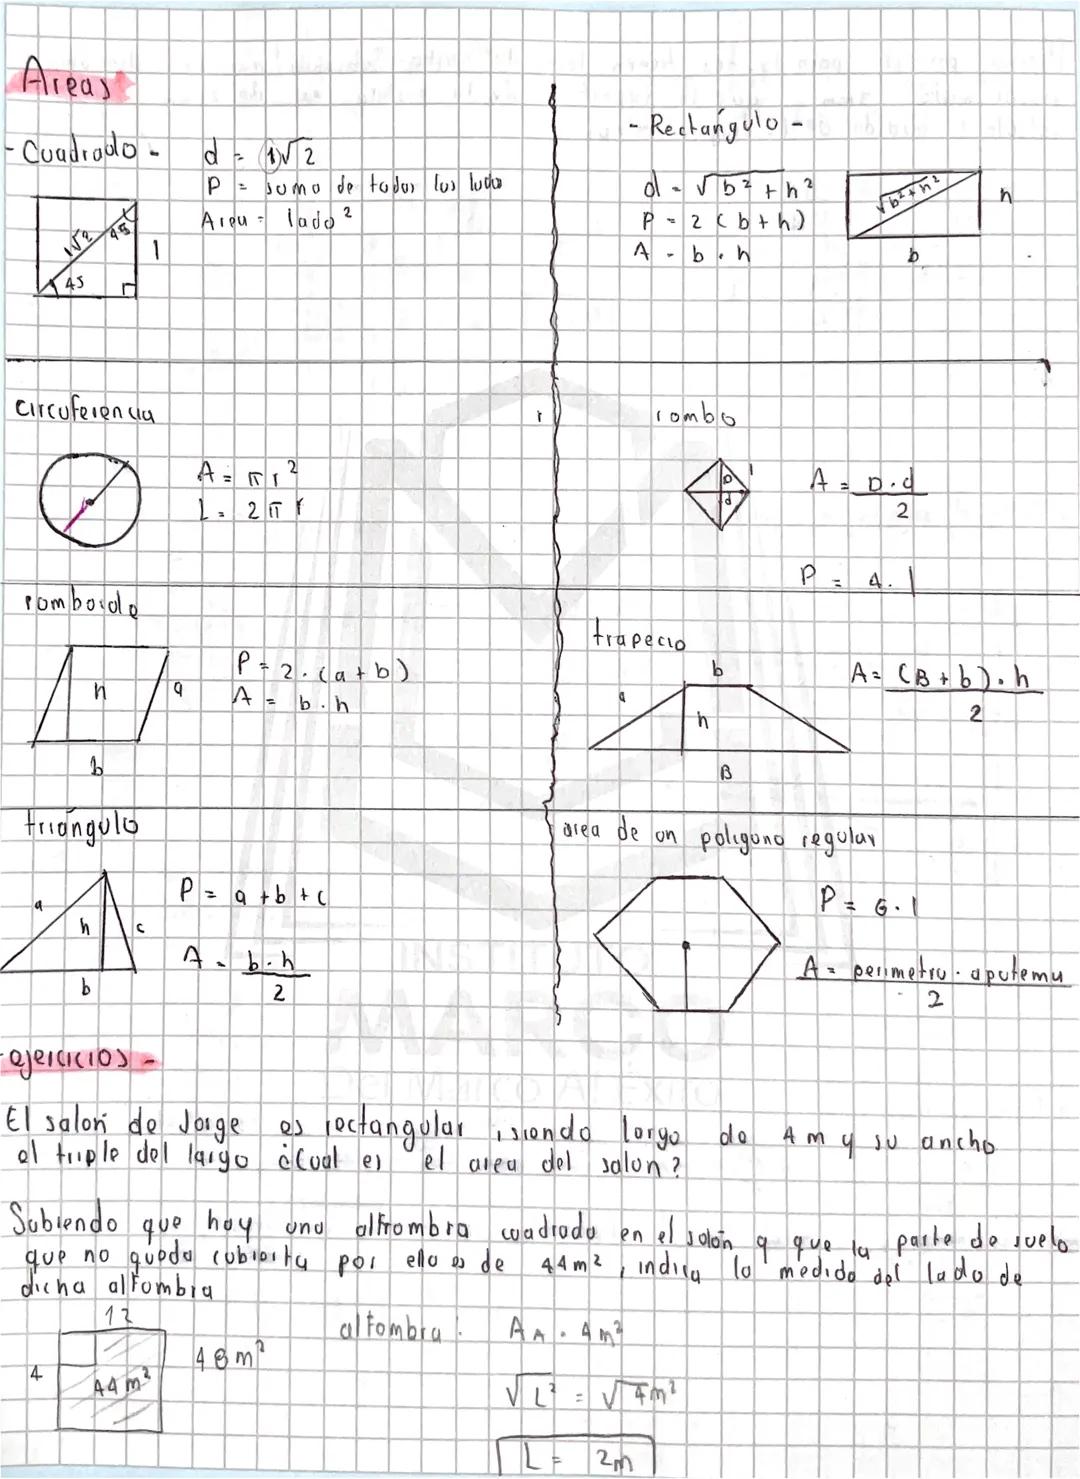 Areas
- Cuadrado -
d = 1√2
P = suma de todos los lados
Area = lado²
1√2
45
45
1
- Rectángulo -
d = √b² + h²
P = 2 (b + h)
A = b . h
√b² + h²
h
b
circuferencia
A = π r²
L = 2 π r
rombo
D
d
l
A = D . d / 2
P = 4 . l
romboide
h
a
b
P = 2 . (a + b)
A = b . h
trapecio
b
a
h
B
A = (B + b) . h / 2
triángulo
a
h
c
b
P = a + b + c
A = b . h / 2
area de un poligono regular
P = 6 . l
A = perimetro . apotema / 2
INSTITUTO
MARGO
- ejercicios -
El salón de Jorge es rectangular, siendo largo de 4 m y su ancho
el triple del largo ¿Cual es el area del salon?
Sabiendo que hay una alfrombra cuadrada en el salón y que la parte de suelo
que no queda cubierta por ella es de 44 m², indica la medida del lado de
dicha alfombra
12
4
44 m²
48 m²
alfombra : A_A = 4 m²
√L² = √4m²
L = 2m